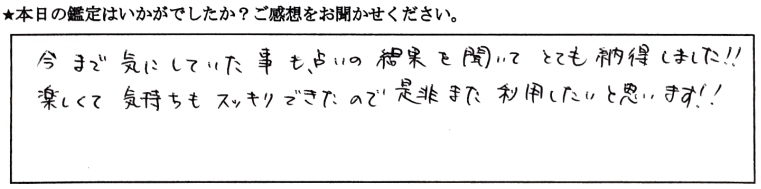 ★本日の鑑定はいかがでしたか？ご感想をお聞かせください。
今まで気にしていた事も、占いの結果を聞いてとても納得しました!!
楽しくて気持ちもスッキリできたので是非また利用したいと思います!!